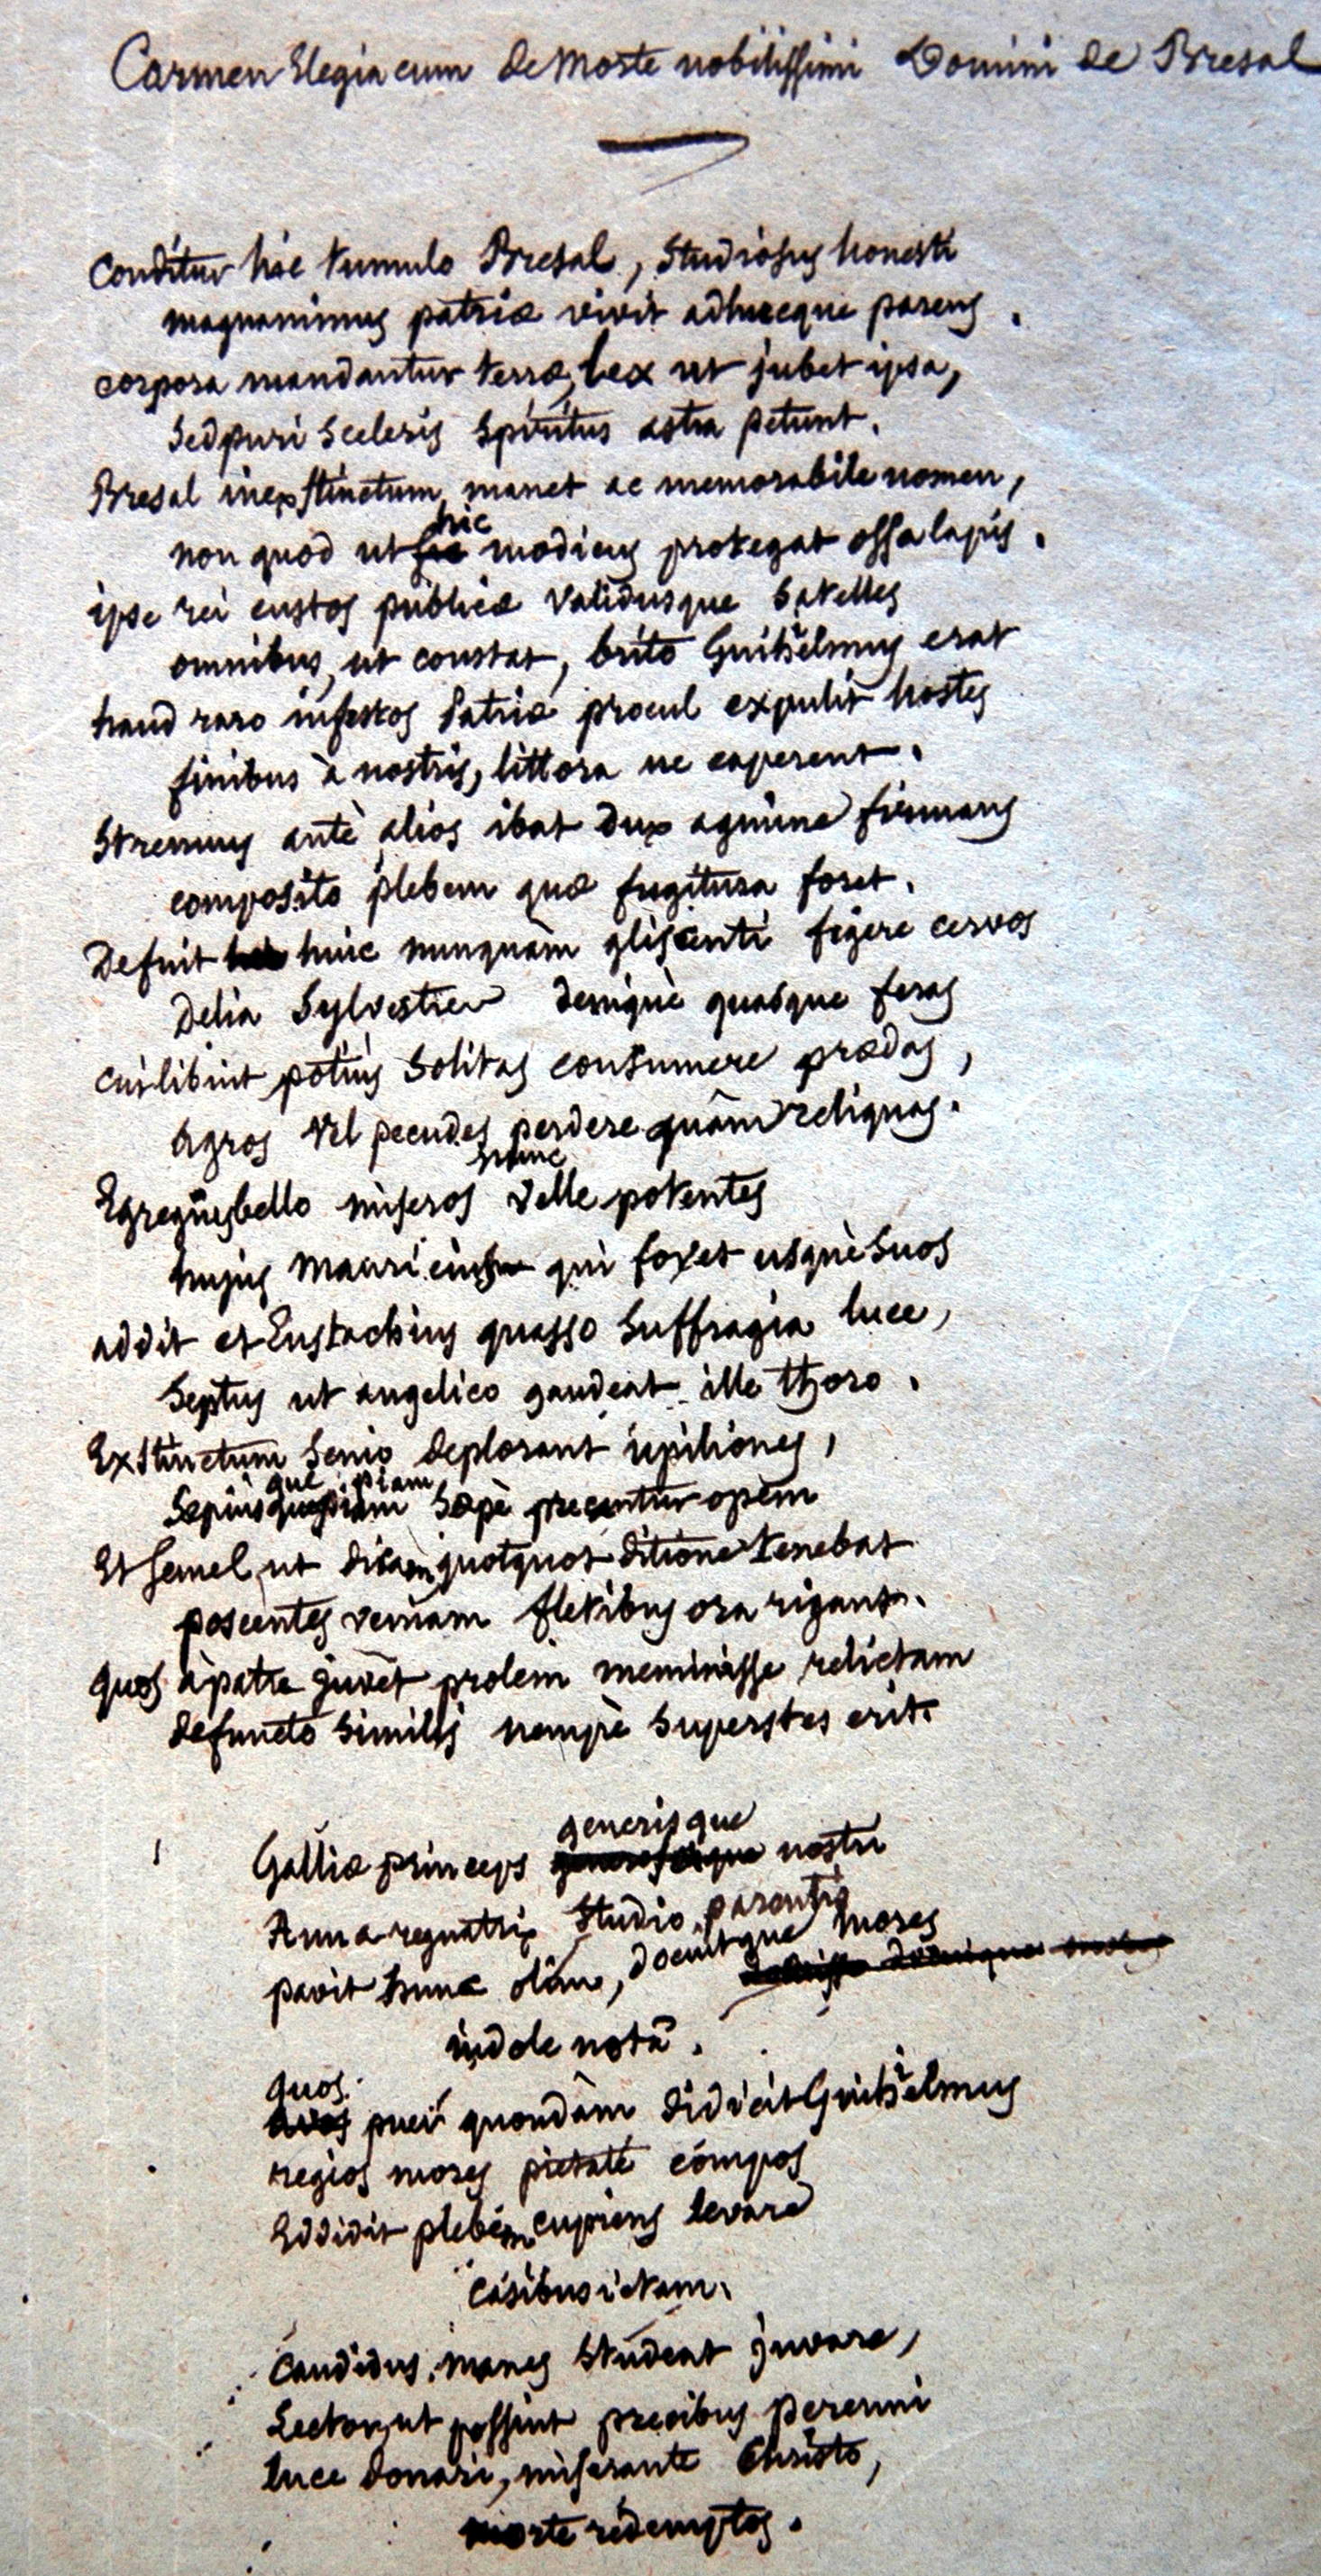 Carmen Elegiacum de Morte nobilissimi Domini de Bresal
Conditur hic tumulo Bresal, studiosus honesti
magnanimus patriæ vivit adhucque parens.
corpora mandantur terræ, lex ut jubet ipsa,
sed puri sceleris spiritus astra petunt.
Bresal inexstinctum manet ac memorabile nomen,
hic
non quod ut modicus protegat ossa lapis.
ipse rei custos publicæ validusque satelles
omnibus, ut constat, brito Guilhelmus erat
haud raro infestos Patriæ procul expulit hostes
finibus à nostris, littora ne caperent.
Strenuus antè alios ibat dux agmina firmans
composito plebem quæ fugitura foret.
Defuit huic nunquàm gliscenti figere cervos
Delia Sylvestres deniquè quasque feras
cui libuit potiùs solitas consumere prædas,
agros vel pecudes perdere quâm reliquas.
nunc
Egregüs bello miseros velle potentes
hujus Mauri qui fovet usquè suos
addit et Eustachius quasso suffragia luce,
septus ut angelico gaudeat ille thoro.
Exstinctum senio deplorant upiliones,
que piam
Sæpius sæpè precantur opem
Et semel, ut dicam quotquot ditione tenebat
poscentes veniam fletibus ora rigant.
quos à patre juvet prolem meminisse relictam
defuncto similis nempè superstes erit.
generisque
Galliæ princeps nostri
Anna regnatrix studio parentis
pavit hunc olim, docuitque mores
indole notâ.
quos
pueri quondàm didicit Guilhelmus
regios mores pietate compos
Eddidit plebem cupiens levare
casibus ictam.
Candidus manes studeat juvare,
Lector, ut possint precibus perenni
luce donari, miserante Christo,
morte redemptos.